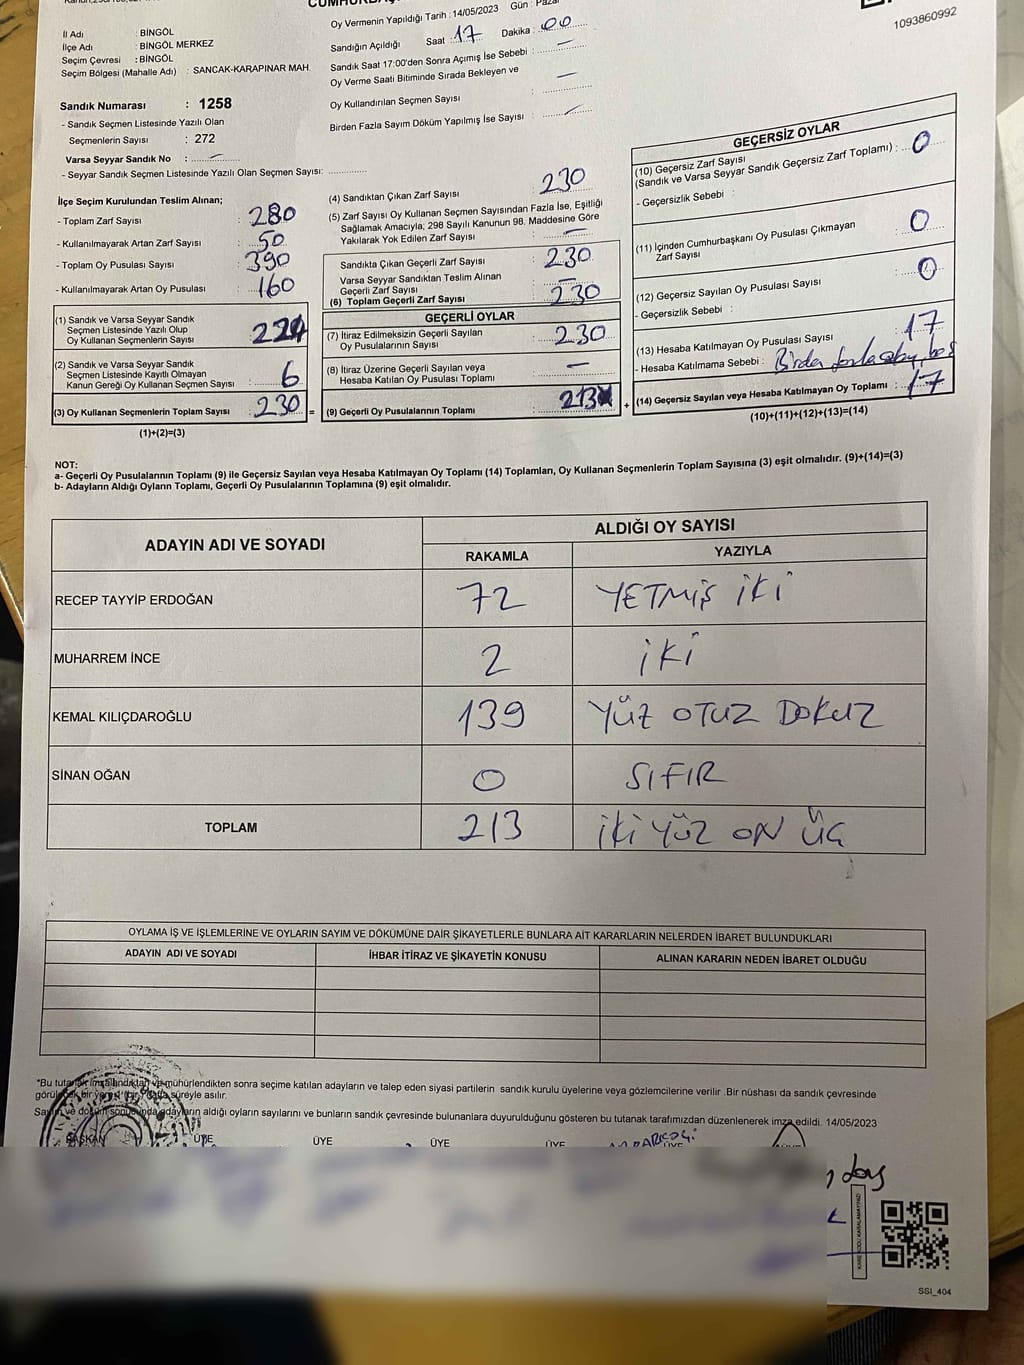 Oy Vermenin Yapıldığı Tarih : 14/05/2023 Gün : Pazar
1093860992
İl Adı : BİNGÖL
İlçe Adı : BİNGÖL MERKEZ
Seçim Çevresi : BİNGÖL
Seçim Bölgesi (Mahalle Adı) : SANCAK-KARAPINAR MAH.
Sandığın Açıldığı Saat : 17 Dakika : 00
Sandık Saat 17:00'den Sonra Açımış İse Sebebi : —
Oy Verme Saati Bitiminde Sırada Bekleyen ve
Oy Kullandırılan Seçmen Sayısı : —
Birden Fazla Sayım Döküm Yapılmış İse Sayısı : —
Sandık Numarası : 1258
- Sandık Seçmen Listesinde Yazılı Olan
Seçmenlerin Sayısı : 272
Varsa Seyyar Sandık No : —
- Seyyar Sandık Seçmen Listesinde Yazılı Olan Seçmen Sayısı:
İlçe Seçim Kurulundan Teslim Alınan;
- Toplam Zarf Sayısı : 280
- Kullanılmayarak Artan Zarf Sayısı : 50
- Toplam Oy Pusulası Sayısı : 390
- Kullanılmayarak Artan Oy Pusulası : 160
(1) Sandık ve Varsa Seyyar Sandık
Seçmen Listesinde Yazılı Olup
Oy Kullanan Seçmenlerin Sayısı : 224
(2) Sandık ve Varsa Seyyar Sandık
Seçmen Listesinde Kayıtlı Olmayan
Kanun Gereği Oy Kullanan Seçmen Sayısı : 6
(3) Oy Kullanan Seçmenlerin Toplam Sayısı : 230 =
(1)+(2)=(3)
(4) Sandıktan Çıkan Zarf Sayısı : 230
(5) Zarf Sayısı Oy Kullanan Seçmen Sayısından Fazla İse, Eşitliği
Sağlamak Amacıyla; 298 Sayılı Kanunun 98. Maddesine Göre
Yakılarak Yok Edilen Zarf Sayısı : —
Sandıkta Çıkan Geçerli Zarf Sayısı : 230
Varsa Seyyar Sandıktan Teslim Alınan
Geçerli Zarf Sayısı : —
(6) Toplam Geçerli Zarf Sayısı : 230
GEÇERLİ OYLAR
(7) İtiraz Edilmeksizin Geçerli Sayılan
Oy Pusulalarının Sayısı : 230
(8) İtiraz Üzerine Geçerli Sayılan veya
Hesaba Katılan Oy Pusulası Toplamı : —
(9) Geçerli Oy Pusulalarının Toplamı : 213 +
GEÇERSİZ OYLAR
(10) Geçersiz Zarf Sayısı
(Sandık ve Varsa Seyyar Sandık Geçersiz Zarf Toplamı) : 0
- Geçersizlik Sebebi :
(11) İçinden Cumhurbaşkanı Oy Pusulası Çıkmayan
Zarf Sayısı : 0
(12) Geçersiz Sayılan Oy Pusulası Sayısı : 0
- Geçersizlik Sebebi :
(13) Hesaba Katılmayan Oy Pusulası Sayısı : 17
- Hesaba Katılmama Sebebi :
(14) Geçersiz Sayılan veya Hesaba Katılmayan Oy Toplamı : 17
(10)+(11)+(12)+(13)=(14)
NOT:
a- Geçerli Oy Pusulalarının Toplamı (9) ile Geçersiz Sayılan veya Hesaba Katılmayan Oy Toplamı (14) Toplamları, Oy Kullanan Seçmenlerin Toplam Sayısına (3) eşit olmalıdır. (9)+(14)=(3)
b- Adayların Aldığı Oyların Toplamı, Geçerli Oy Pusulalarının Toplamına (9) eşit olmalıdır.
ADAYIN ADI VE SOYADI ALDIĞI OY SAYISI
RAKAMLA YAZIYLA
RECEP TAYYİP ERDOĞAN 72 YETMİŞ İKİ
MUHARREM İNCE 2 İKİ
KEMAL KILIÇDAROĞLU 139 YÜZ OTUZ DOKUZ
SİNAN OĞAN 0 SIFIR
TOPLAM 213 İKİ YÜZ ON ÜÇ
OYLAMA İŞ VE İŞLEMLERİNE VE OYLARIN SAYIM VE DÖKÜMÜNE DAİR ŞİKAYETLERLE BUNLARA AİT KARARLARIN NELERDEN İBARET BULUNDUKLARI
ADAYIN ADI VE SOYADI İHBAR İTİRAZ VE ŞİKAYETİN KONUSU ALINAN KARARIN NEDEN İBARET OLDUĞU
*Bu tutanak imzalandıktan ve mühürlendikten sonra seçime katılan adayların ve talep eden siyasi partilerin sandık kurulu üyelerine veya gözlemcilerine verilir .Bir nüshası da sandık çevresinde
görülecek bir yere bir hafta süreyle asılır.
Sayım ve döküm sonucunda adayların aldığı oyların sayılarını ve bunların sandık çevresinde bulunanlara duyurulduğunu gösteren bu tutanak tarafımızdan düzenlenerek imza edildi. 14/05/2023
BAŞKAN ÜYE ÜYE ÜYE ÜYE ÜYE
SSI_404